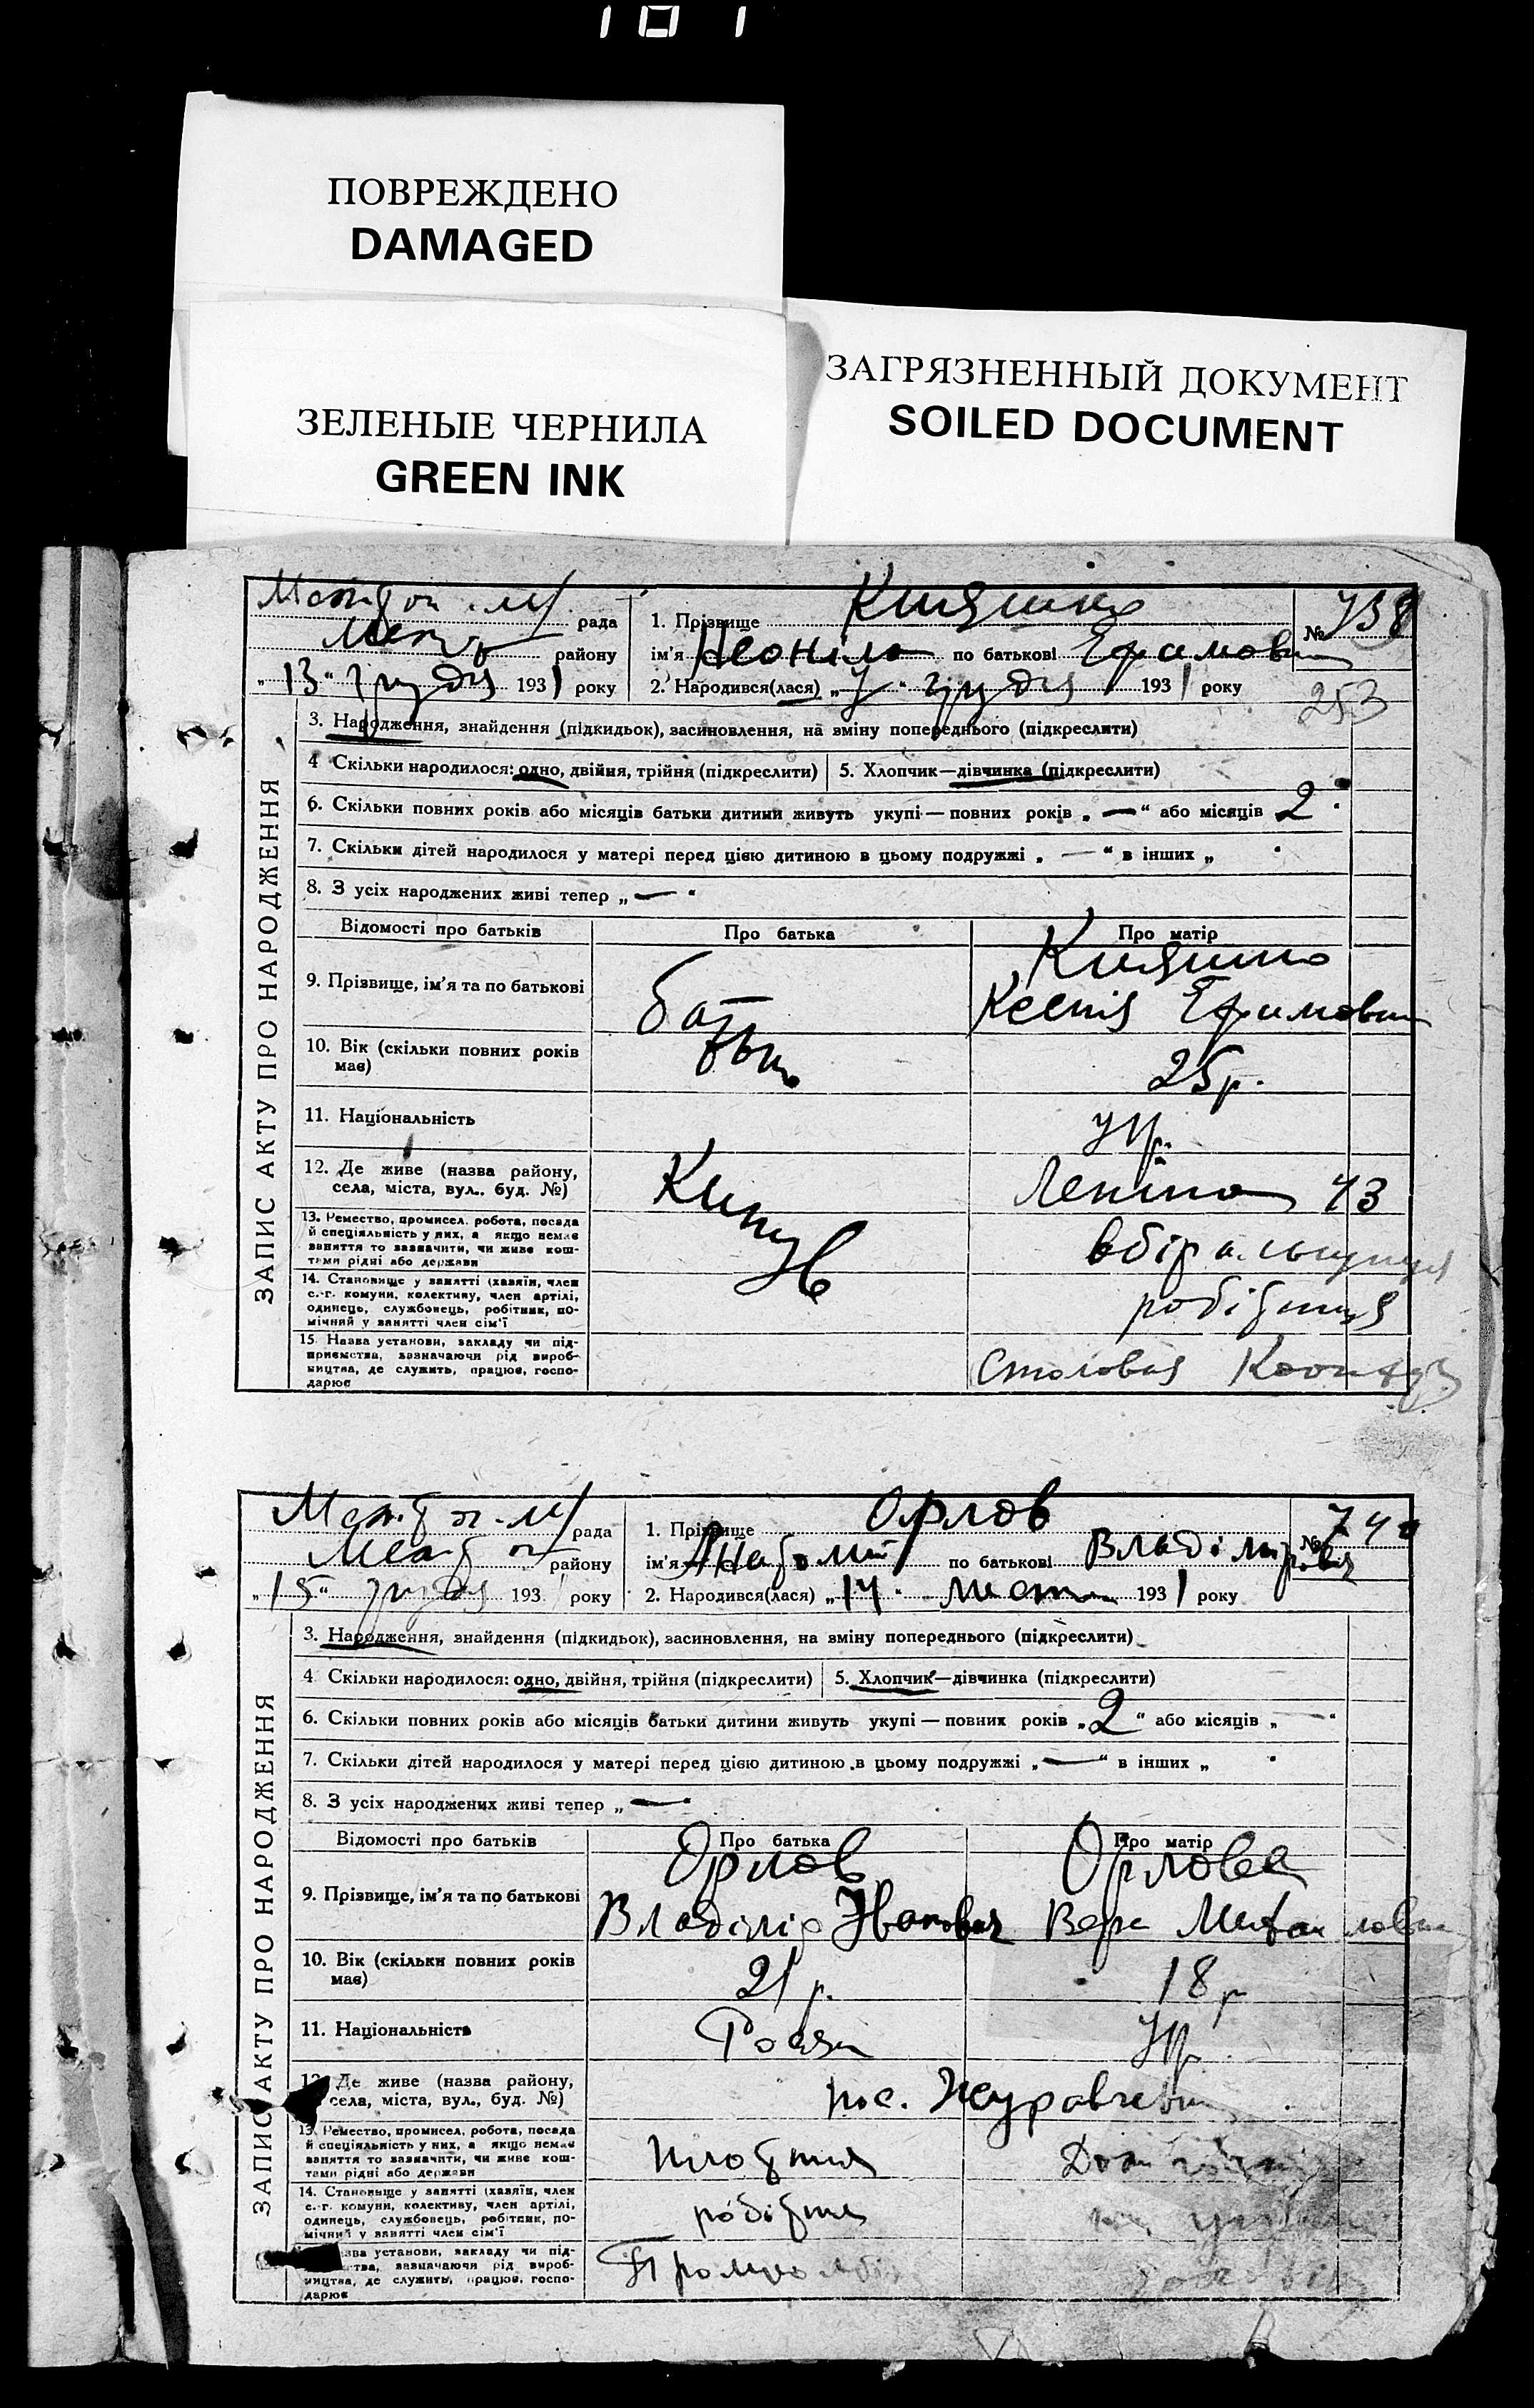 101
ПОВРЕЖДЕНО
DAMAGED
ЗЕЛЕНЫЕ ЧЕРНИЛА
GREEN INK
ЗАГРЯЗНЕННЫЙ ДОКУМЕНТ
SOILED DOCUMENT
ЗАПИС АКТУ ПРО НАРОДЖЕННЯ
рада
району
„13“ грудня 1931 року
1. Прізвище
№
ім'я Неоніла по батькові
2. Народився(лася) „7“ грудня 1931 року
253
3. Народження, знайдення (підкидьок), засиновлення, на зміну попереднього (підкреслити)
4 Скільки народилося: одно, двійня, трійня (підкреслити) 5. Хлопчик—дівчинка (підкреслити)
6. Скільки повних років або місяців батьки дитини живуть укупі — повних років „—“ або місяців 2
7. Скільки дітей народилося у матері перед цією дитиною в цьому подружжі „—“ в інших „
8. З усіх народжених живі тепер „—“
Відомості про батьків Про батька Про матір
9. Прізвище, ім'я та по батькові
Ксенія
10. Вік (скільки повних років має) 25 р.
11. Національність укр.
12. Де живе (назва району, села, міста, вул., буд. №) Леніна
13. Ремество, промисел, робота, посада й спеціяльність у них, а якщо немає заняття то зазначити, чи живе коштами рідні або держави
14. Становище у занятті (хазяїн, член с.-г. комуни, колективу, член артілі, одинець, службовець, робітник, помічний у занятті член сім'ї робітниця
15. Назва установи, закладу чи підприємства, зазначаючи рід виробництва, де служить, працює, господарює Столовая
ЗАПИС АКТУ ПРО НАРОДЖЕННЯ
рада
району
„15“ грудня 193 року
1. Прізвище Орлов
№ 740
ім'я Анатолій по батькові Владімірович
2. Народився(лася) „14“ лист 1931 року
3. Народження, знайдення (підкидьок), засиновлення, на зміну попереднього (підкреслити)
4 Скільки народилося: одно, двійня, трійня (підкреслити) 5. Хлопчик—дівчинка (підкреслити)
6. Скільки повних років або місяців батьки дитини живуть укупі — повних років „2“ або місяців „—“
7. Скільки дітей народилося у матері перед цією дитиною в цьому подружжі „—“ в інших „
8. З усіх народжених живі тепер „—“
Відомості про батьків Про батька Про матір
Орлов Орлова
9. Прізвище, ім'я та по батькові Владімір Іванович Вера
10. Вік (скільки повних років має) 21 р. 18 р
11. Національність укр
12. Де живе (назва району, села, міста, вул., буд. №) пос.
13. Ремество, промисел, робота, посада й спеціяльність у них, а якщо немає заняття то зазначити, чи живе коштами рідні або держави
14. Становище у занятті (хазяїн, член с.-г. комуни, колективу, член артілі, одинець, службовець, робітник, помічний у занятті член сім'ї робітник
зва установи, закладу чи підтва, зазначаючи рід виробництва, де служить, працює, господарює